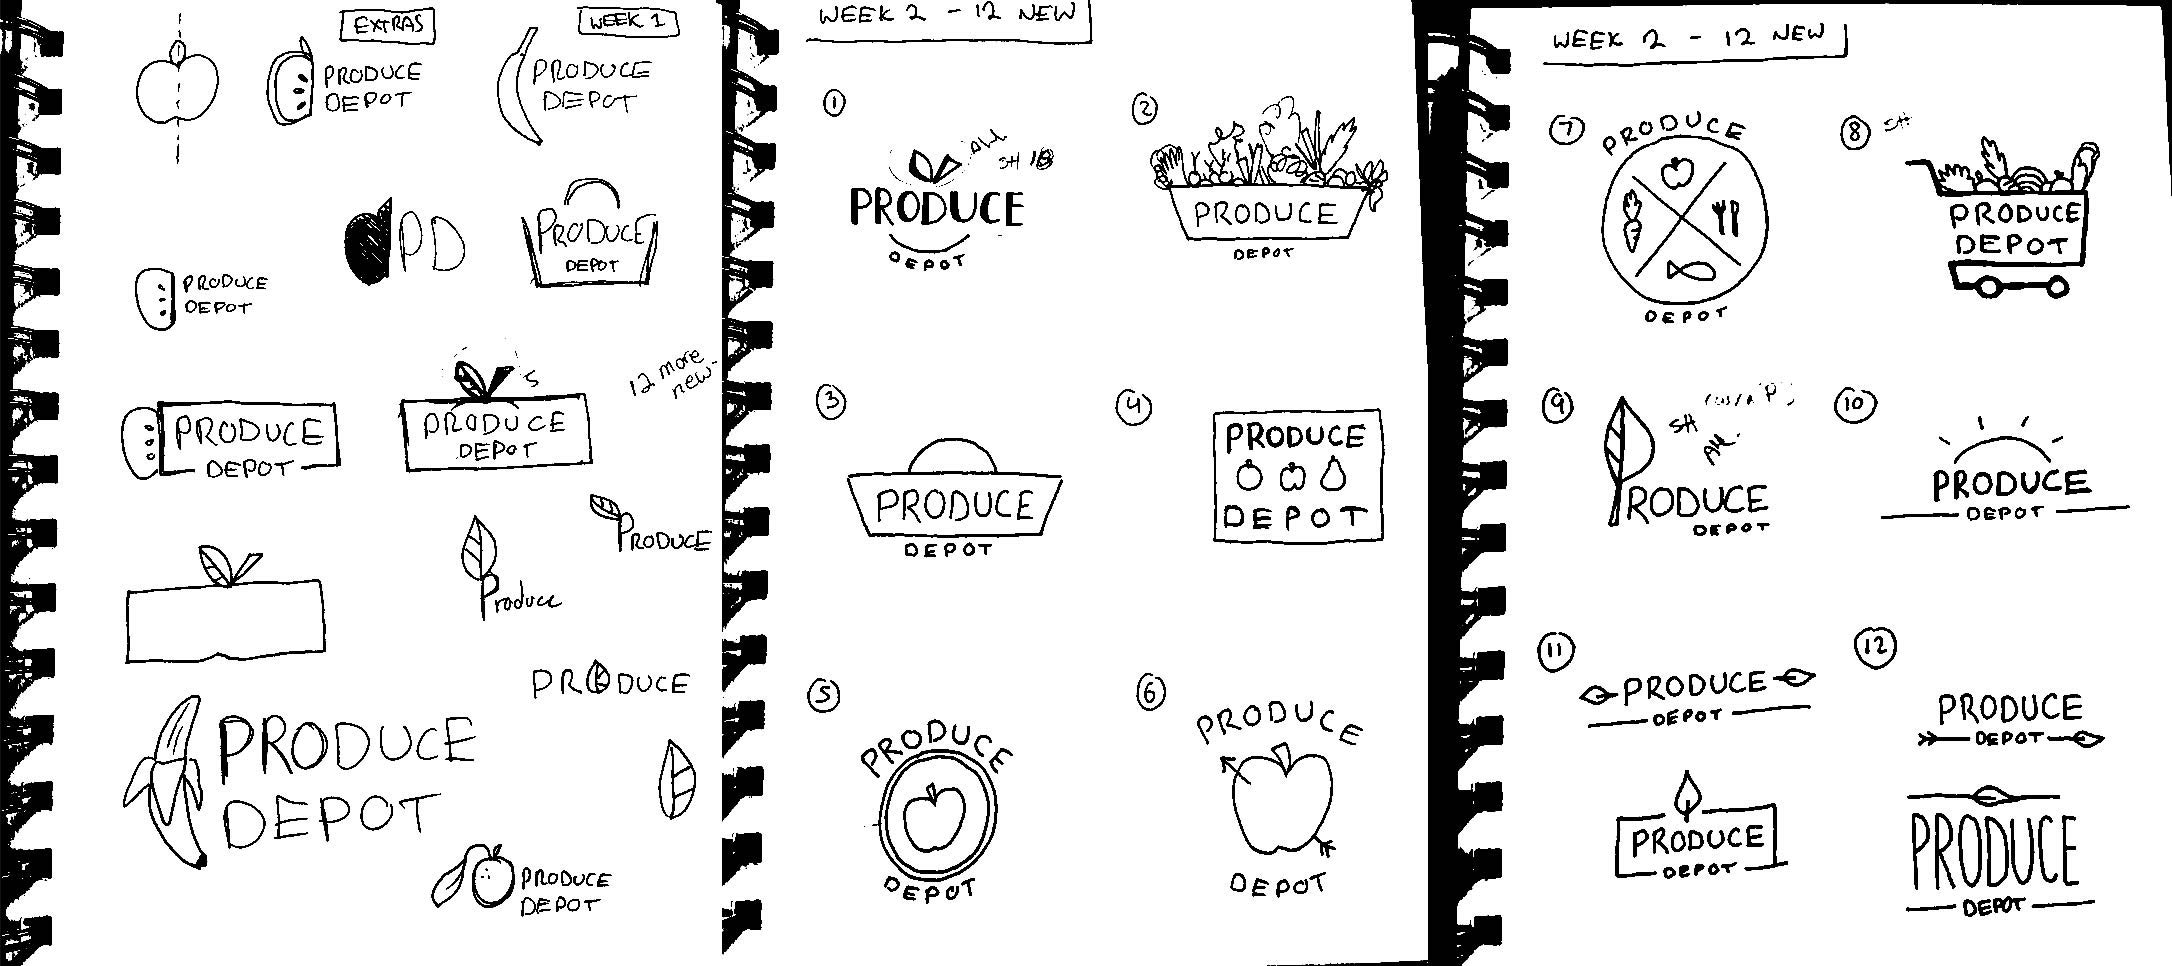 EXTRAS
WEEK 1
PRODUCE
DEPOT
PRODUCE
DEPOT
PD
PRODUCE
DEPOT
PRODUCE
DEPOT
12 more
new
PRODUCE
DEPOT
S
PRODUCE
DEPOT
PRODUCE
Produce
PRODUCE
PRODUCE
DEPOT
PRODUCE
DEPOT
WEEK 2 - 12 NEW
1
SH
PRODUCE
DEPOT
2
PRODUCE
DEPOT
3
PRODUCE
DEPOT
4
PRODUCE
DEPOT
5
PRODUCE
DEPOT
6
PRODUCE
DEPOT
WEEK 2 - 12 NEW
7
PRODUCE
DEPOT
8
SH
PRODUCE
DEPOT
9
SH
PRODUCE
DEPOT
10
PRODUCE
DEPOT
11
PRODUCE
DEPOT
PRODUCE
DEPOT
12
PRODUCE
DEPOT
PRODUCE
DEPOT